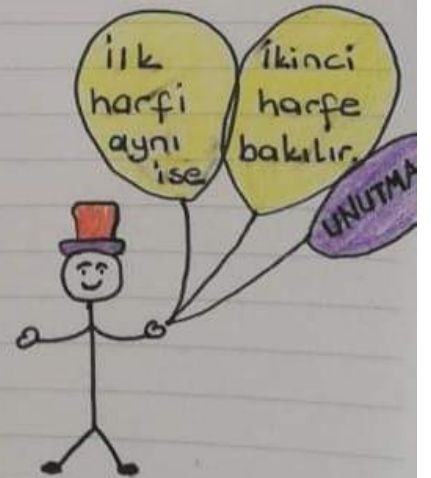 ilk
harfi
aynı
ise
ikinci
harfe
bakılır.
UNUTMA